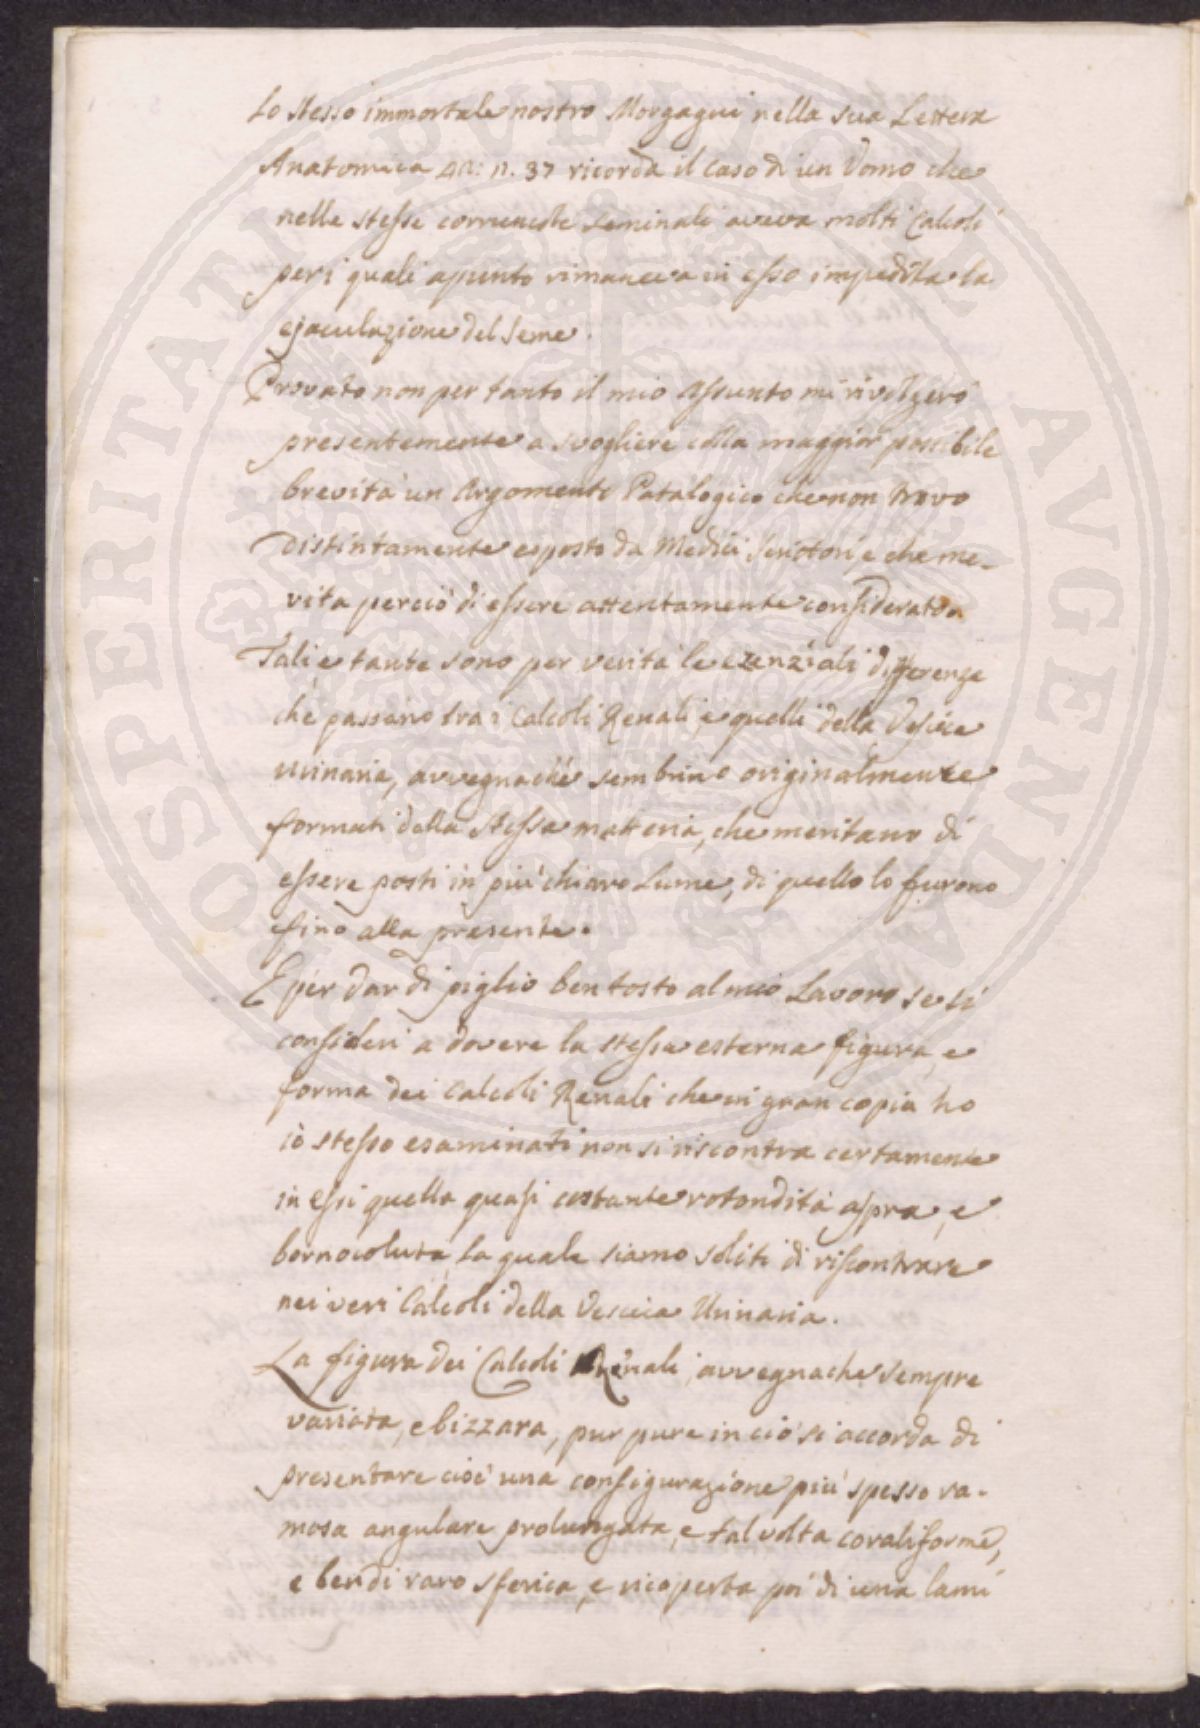 Lo stesso immortale nostro Morgagni nella sua Lettera
Anatomica n. 37 ricorda il caso di un Uomo che
nelle stesse seminali aveva molti Calcoli
per i quali apunto rimaneva in esso impedita la
ejaculazione del seme.
Provato non per tanto il mio assunto mi rivolgerò
presentemente a svogliere colla maggior possibile
brevità un Argomento Patalogico che non trovo
distintamente esposto da Medici Scrittori, e che me-
rita perciò di essere attentamente considerato.
Tali e tante sono per verità le ezenziali differenze
che passano tra i Calcoli Renali, e quelli della Vescica
urinaria, avvegnaché sembrino originalmente
formati della stessa materia, che meritano di
essere posti in più chiaro Lume, di quello lo furono
fino alla presente.
E per dar di piglio ben tosto al mio Lavoro se si
consideri a dovere la stessa esterna figura, e
forma dei Calcoli Renali che in gran copia ho
iò stesso esaminati non si riscontra certamente
in essi quella quasi costante rotondità aspra, e
bornocoluta, la quale siamo soliti di riscontrare
nei veri Calcoli della Vescica Urinaria.
La figura dei Calcoli Renali, avvegnache sempre
variata, e bizzara, pur pure in ciò si accorda di
presentare cioè una configurazione più spesso ra-
mosa angulare prolungata, e tal volta coraliforme,
e ben di raro sferica, e ricoperta poi di una lami
PROSPERITATI PUBLICAE AUGENDAE